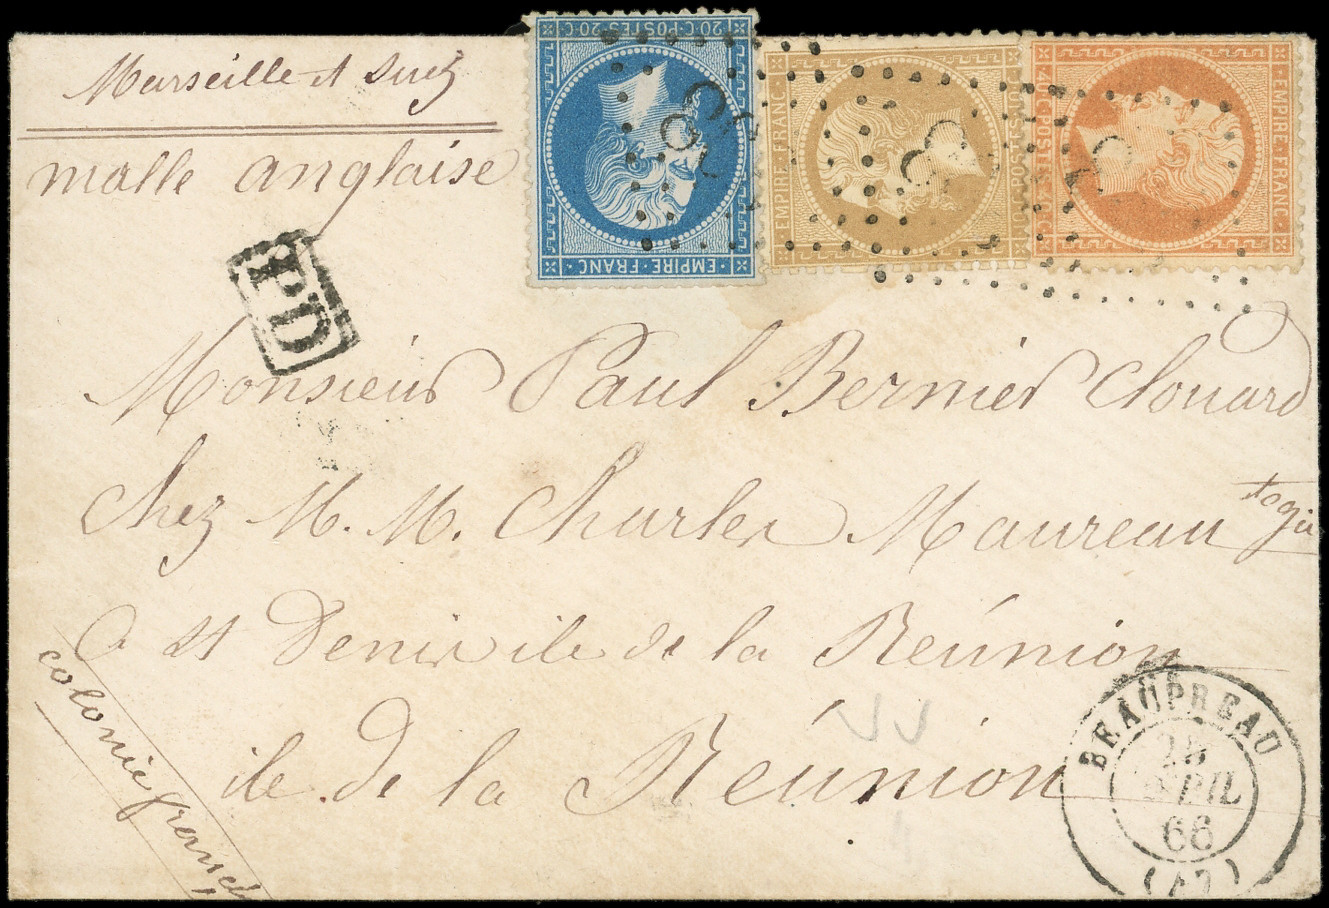 Marseille et Suez
malle anglaise
20·C·POSTES·20·C
EMPIRE·FRANC
EMPIRE·FRANC
POSTES
EMPIRE·FRANC
POSTES
PD
Monsieur Paul Bernier Chouard
Chez M. M. Charles Maureau
à St Denis ile de la Réunion
ile de la Réunion
colonie
BEAUPREAU
66